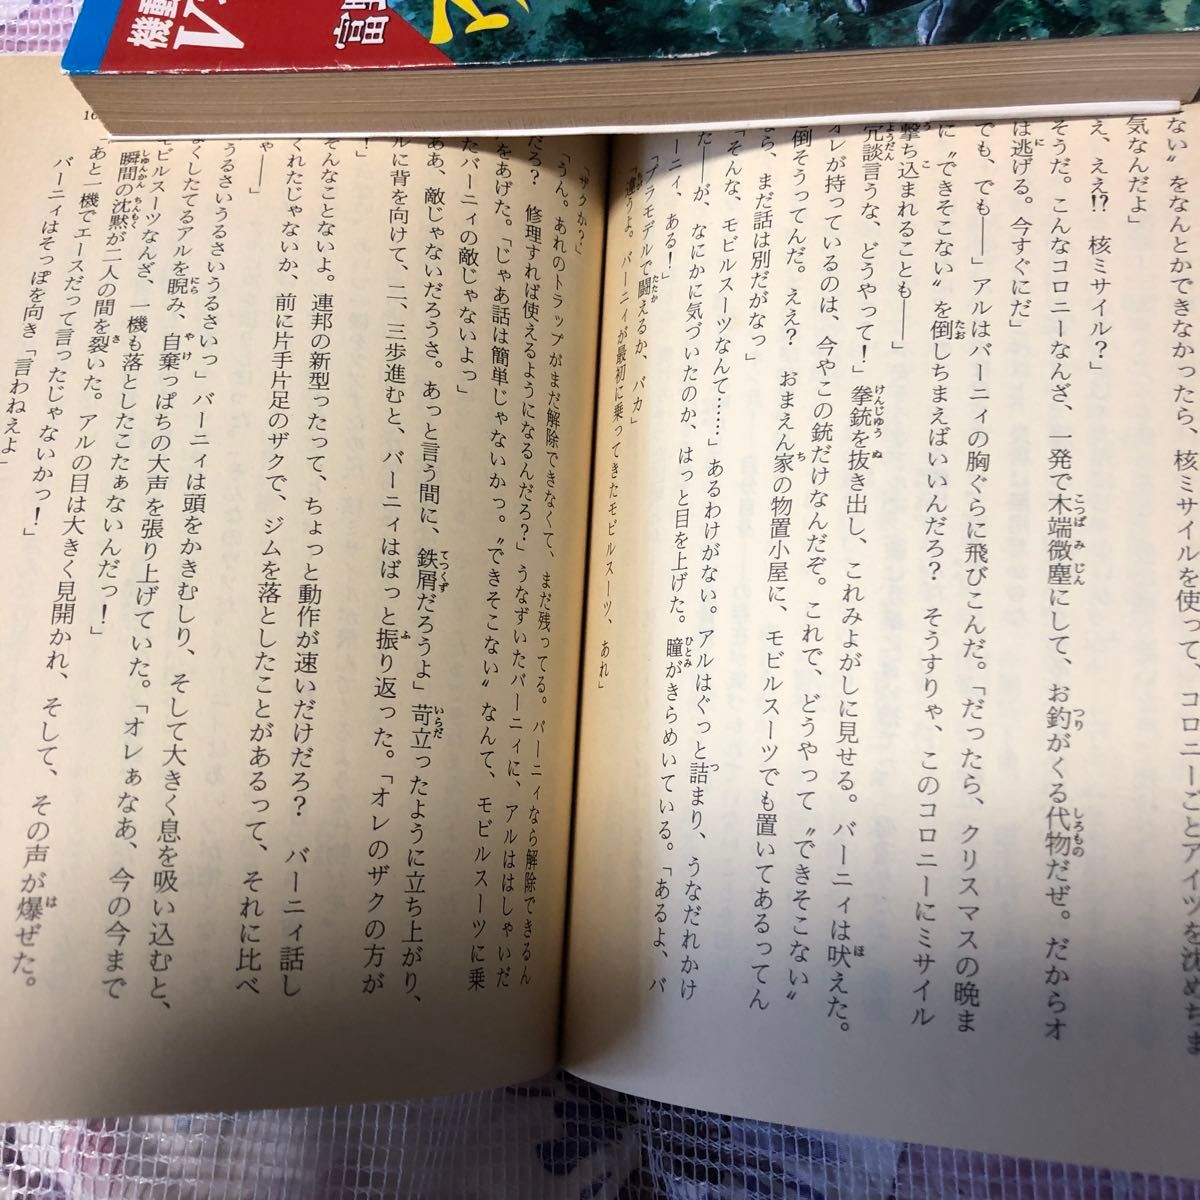 機動
V
富
ない〟をなんとかできなかったら、核ミサイルを使って、コロニーごとアイツを沈めちま
気なんだよ」
え、ええ!?　核ミサイル？」
そうだ。こんなコロニーなんざ、一発で木端微塵にして、お釣がくる代物だぜ。だからオ
は逃げる。今すぐにだ」
でも、でも――」アルはバーニィの胸ぐらに飛びこんだ。「だったら、クリスマスの晩ま
に〝できそこない〟を倒しちまえばいいんだろ？　そうすりゃ、このコロニーにミサイル
撃ち込まれることも――」
冗談言うな、どうやって！」拳銃を抜き出し、これみよがしに見せる。バーニィは吠えた。
オレが持っているのは、今やこの銃だけなんだぞ。これで、どうやって〝できそこない〟
倒そうってんだ。ええ？　おまえん家の物置小屋に、モビルスーツでも置いてあるってん
なら、まだ話は別だがなっ」
「そんな、モビルスーツなんて……」あるわけがない。アルはぐっと詰まり、うなだれかけ
た――が、なにかに気づいたのか、はっと目を上げた。瞳がきらめいている。「あるよ、バ
ーニィ、ある！」
「プラモデルで闘えるか、バカ」
「違うよ。バーニィが最初に乗ってきたモビルスーツ、あれ」
「ザクか？」
「うん。あれのトラップがまだ解除できなくて、まだ残ってる。バーニィなら解除できるん
だろ？　修理すれば使えるようになるんだろ？」うなずいたバーニィに、アルははしゃいだ
をあげた。「じゃあ話は簡単じゃないかっ。〝できそこない〟なんて、モビルスーツに乗
たバーニィの敵じゃないよっ」
ああ、敵じゃないだろうさ。あっと言う間に、鉄屑だろうよ」苛立ったように立ち上がり、
ルに背を向けて、二、三歩進むと、バーニィはばっと振り返った。「オレのザクの方が
！」
そんなことないよ。連邦の新型ったって、ちょっと動作が速いだけだろ？　バーニィ話し
くれたじゃないか、前に片手片足のザクで、ジムを落としたことがあるって、それに比べ
ゃ――」
うるさいうるさいうるさいっ」バーニィは頭をかきむしり、そして大きく息を吸い込むと、
よくしたてるアルを睨み、自棄っぱちの大声を張り上げていた。「オレぁなあ、今の今まで
モビルスーツなんざ、一機も落としたこたぁないんだっ！」
瞬間の沈黙が二人の間を裂いた。アルの目は大きく見開かれ、そして、その声が爆ぜた。
あと一機でエースだって言ったじゃないかっ！」
バーニィはそっぽを向き「言わねえよ」